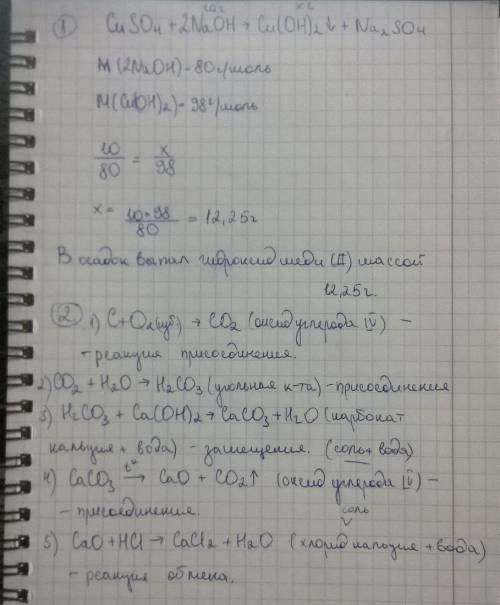 ① CuSO4 + 2NaOH → Cu(OH)2↓ + Na2SO4
10г хг
M(2NaOH) = 80г/моль
M(Cu(OH)2) = 98г/моль
10/80 = x/98
x = 10*98/80 = 12,25г
В осадок выпал гидроксид меди (II) массой
12,25г.
② 1) C+O2(изб) → CO2 (оксид углерода IV) –
– реакция присоединения.
2) CO2 + H2O → H2CO3 (угольная к-та) – присоединения
3) H2CO3 + Ca(OH)2 → CaCO3 + H2O (карбонат
кальция + вода) – замещения. (соль + вода)
4) CaCO3 t°→ CaO + CO2↑ (оксид углерода IV) –
– присоединения.
соль
5) CaO + HCl → CaCl2 + H2O (хлорид кальция + вода)
– реакция обмена.